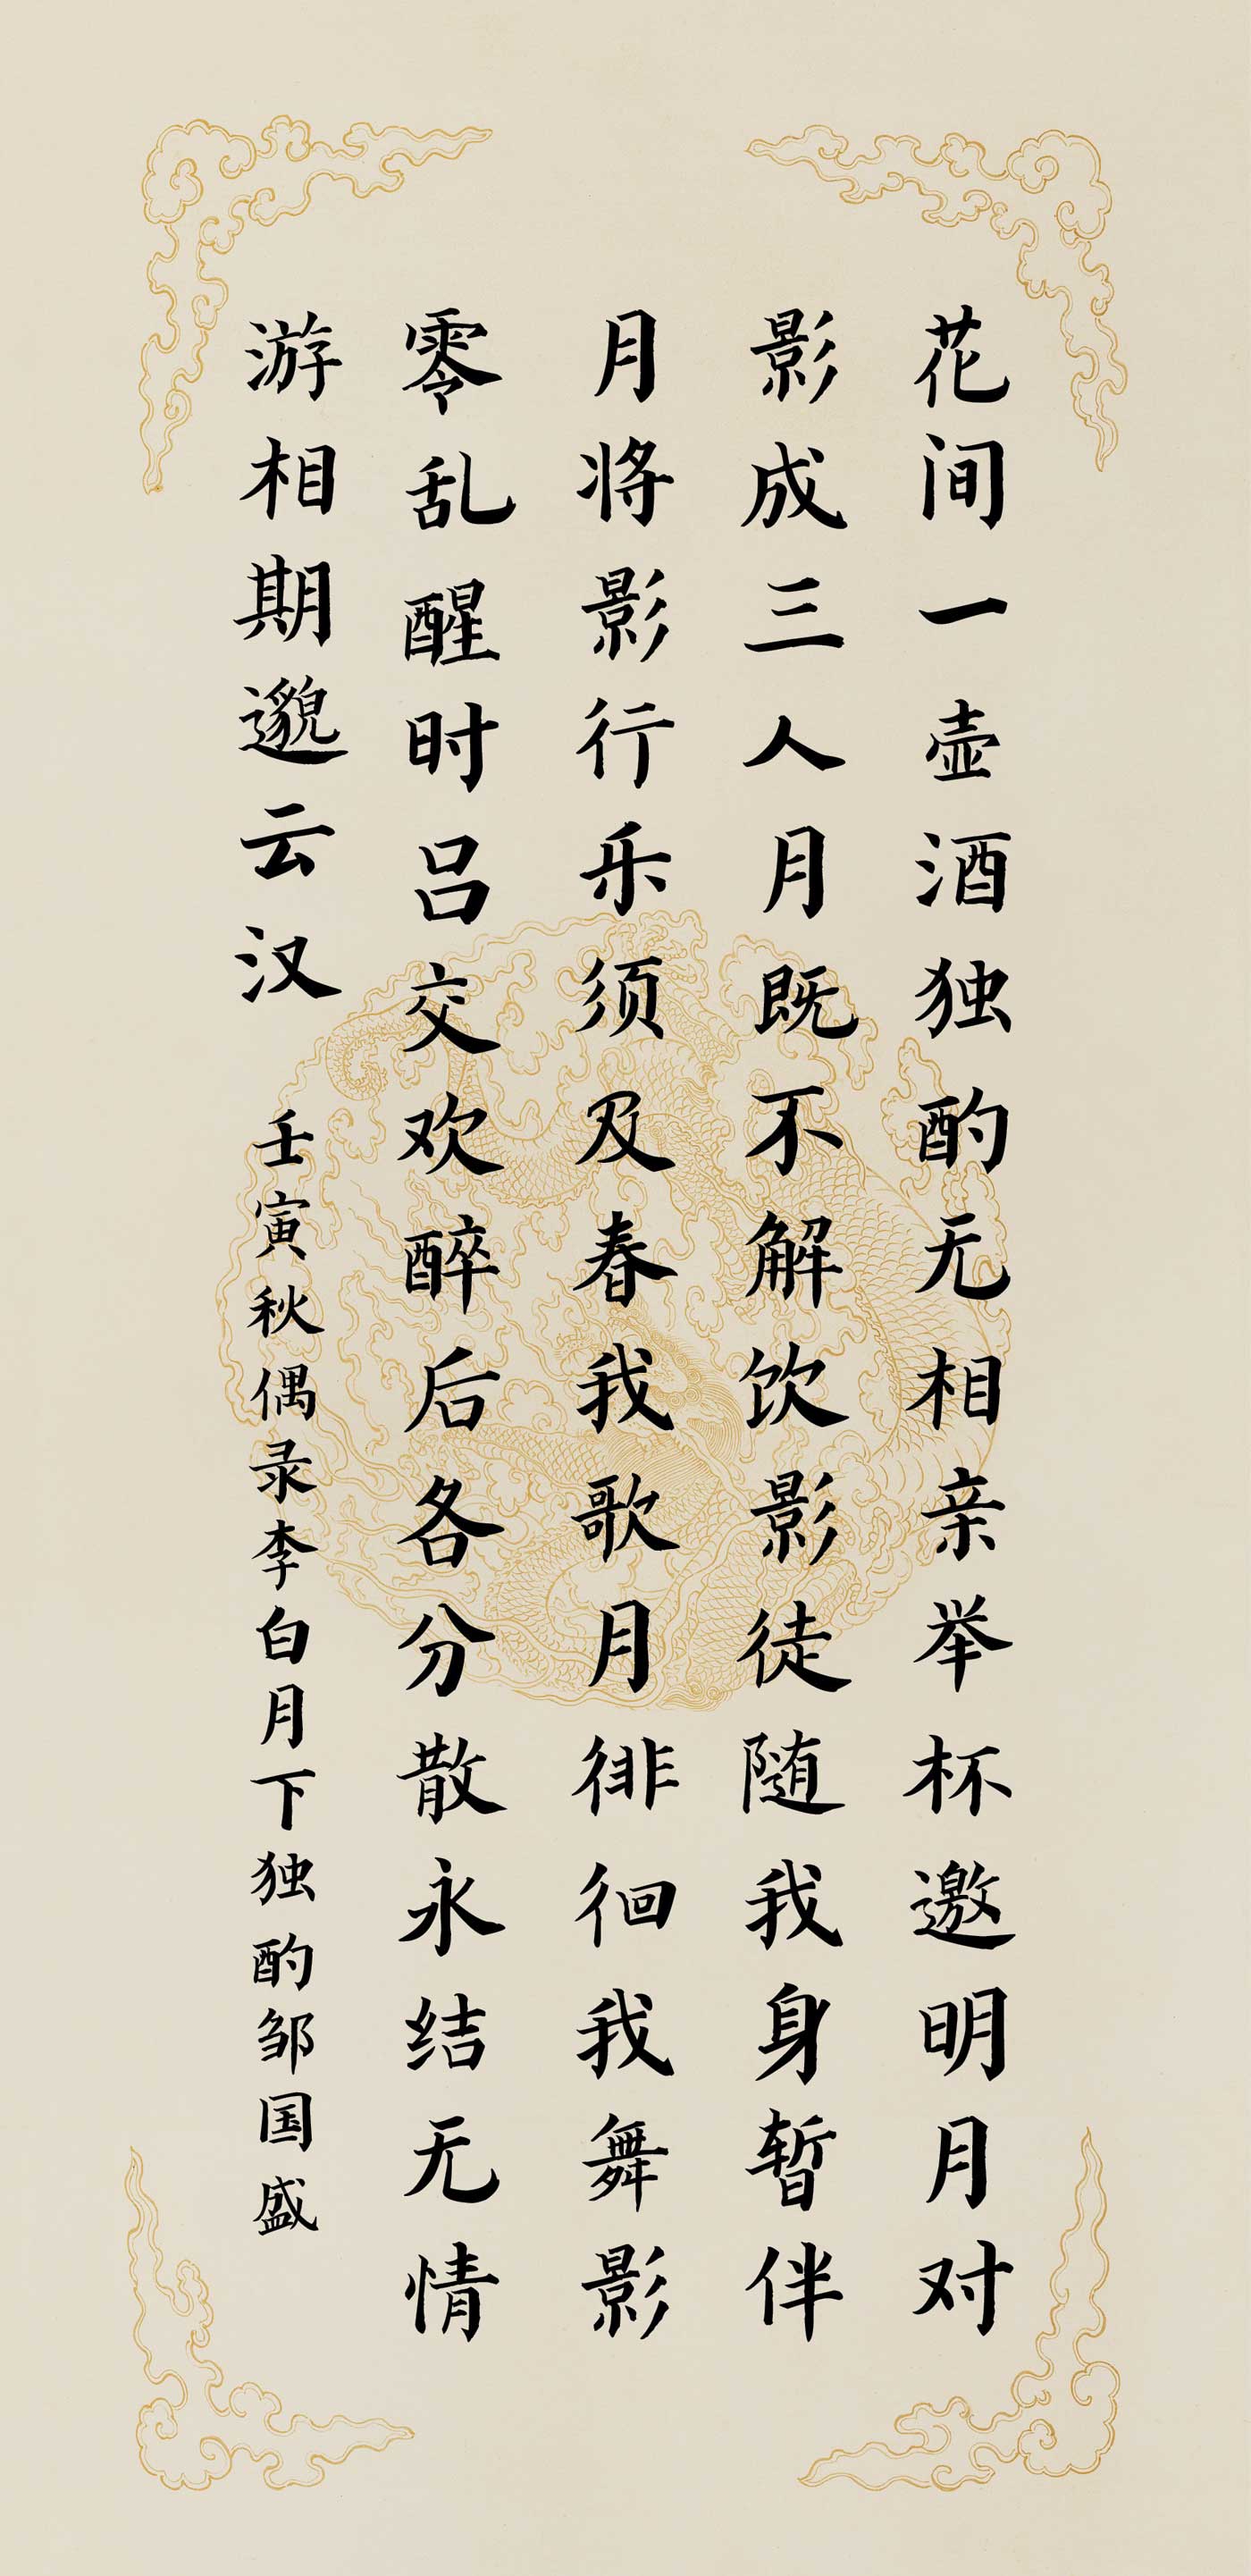 花间一壶酒独酌无相亲举杯邀明月对
影成三人月既不解饮影徒随我身暂伴
月将影行乐须及春我歌月徘徊我舞影
零乱醒时吕交欢醉后各分散永结无情
游相期邈云汉
壬寅秋偶录李白月下独酌邹国盛